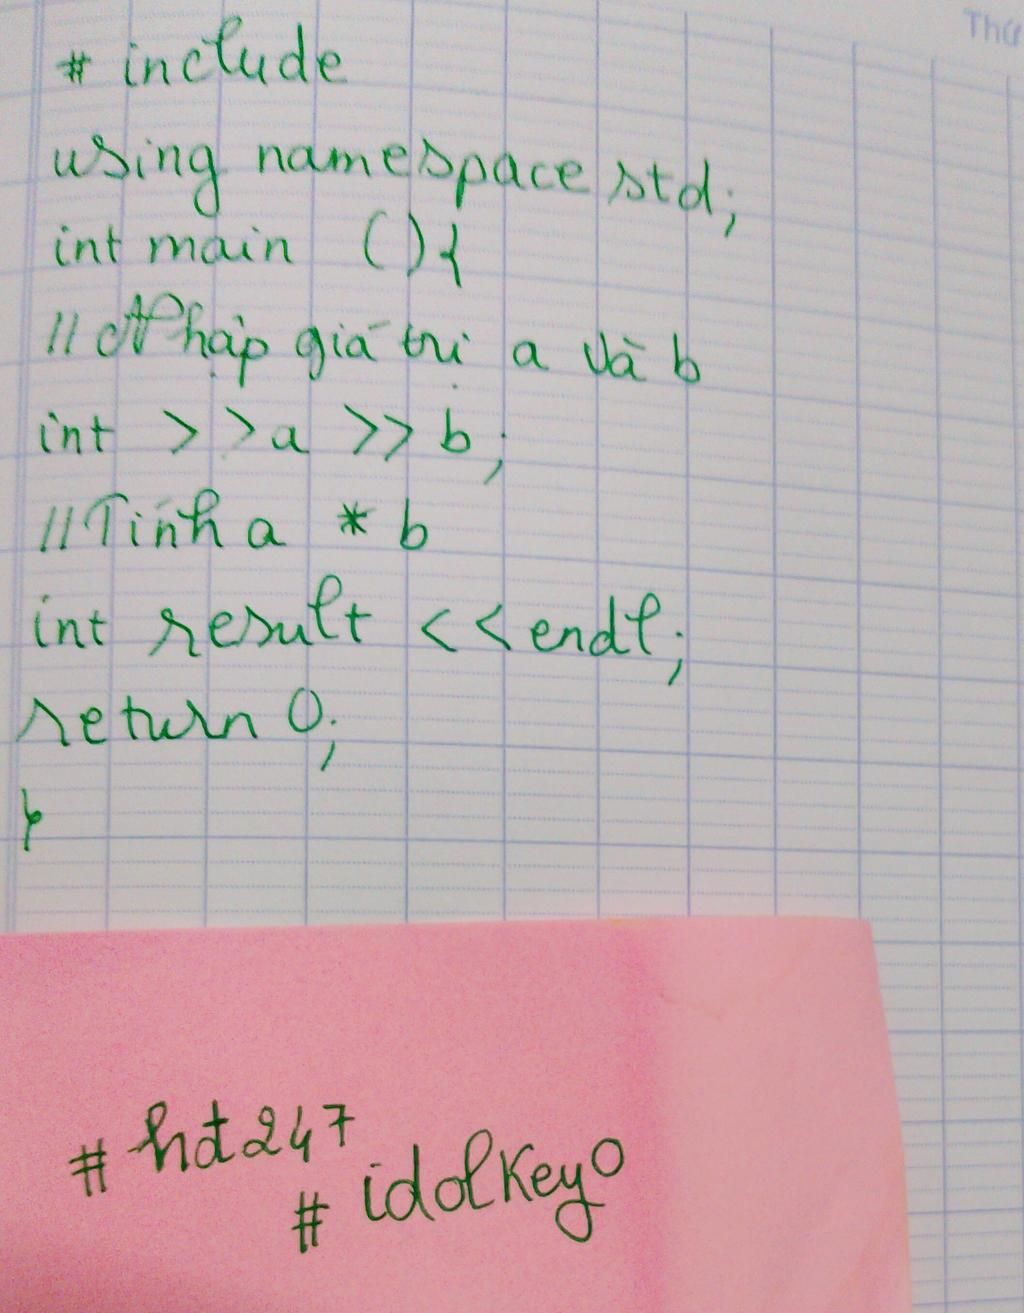 Thứ
# include
using namespace std;
int main () {
// Nhập giá trị a và b
int >>a >> b;
// Tính a * b
int result <<endl;
return 0;
}
#hdt247
#idolkeyo